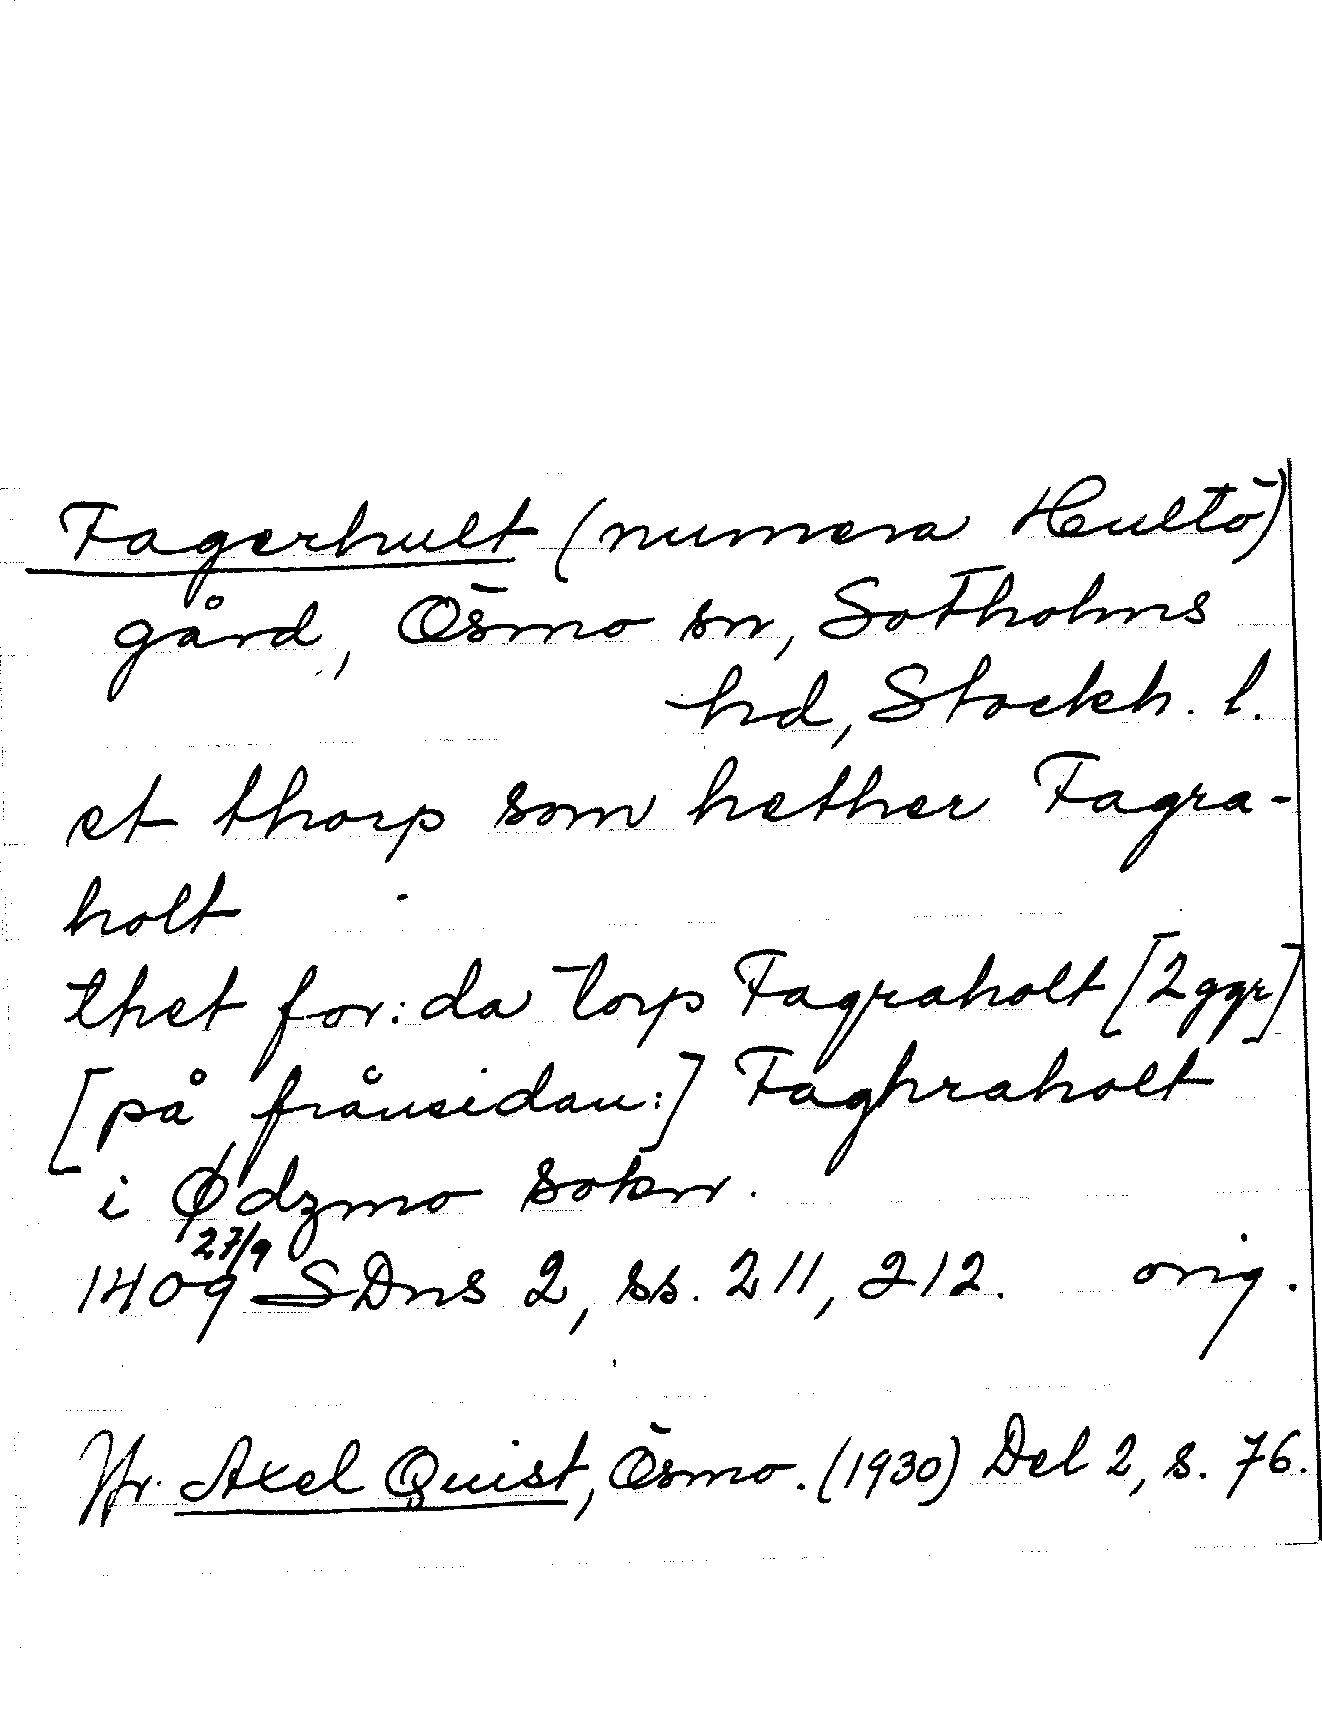 Fagerhult (numera Hultö)
gård, Ösmo sn, Sotholms
hd, Stockh. l.
et thorp som hether Fagra-
holt
thet for:da torp Fagraholt [2 ggr]
[på frånsidan:] Faghraholt
i Ødzmo sokn.
27/9
1409 SDns 2, ss. 211, 212. orig.
Jfr. Axel Quist, Ösmo. (1930) Del 2, s. 76.